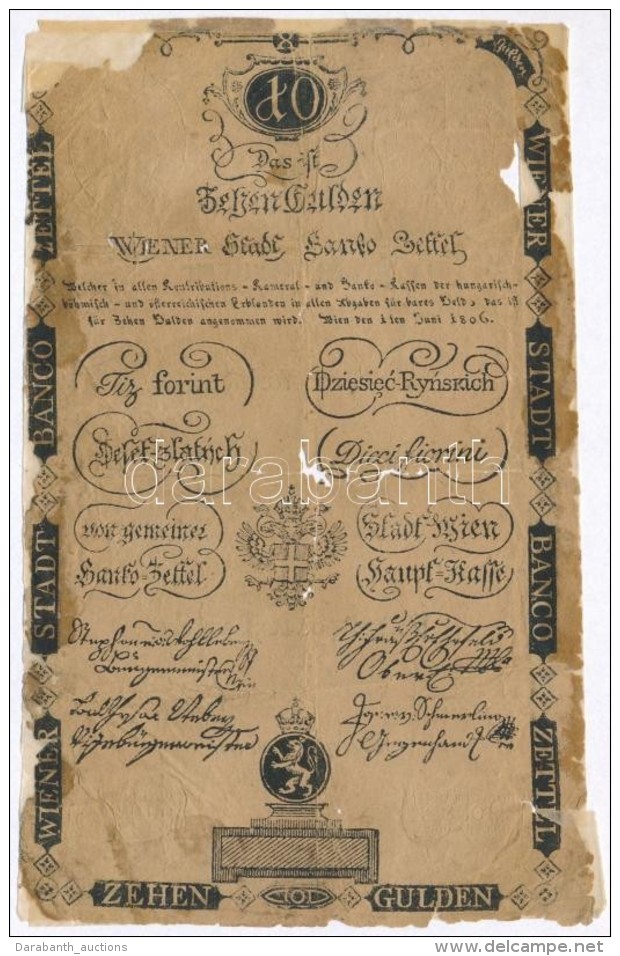 10
Gulden
Das ist
Zehen Gulden
WIENER Stadt Banko Zettel
Welcher in allen Kontributions - Kameral - und Banko - Kassen der hungarisch-
böhmisch - und österreichischen Erblanden in allen Abgaben für bares Geld, das ist
für Zehen Gulden angenommen wird. Wien den 1ten Juni 1806.
Tiz forint
Dzięsięć-Ryńskich
Deset-zlatých
Dieci fiorini
darabanth
von gemeiner
Stadt-Wien
Banko-Zettel
Haupt-Kasse
WIENER STADT BANCO ZETTEL
WIENER STADT BANCO ZETTEL
ZEHEN 101 GULDEN
Darabanth_auctions
delcampe.net